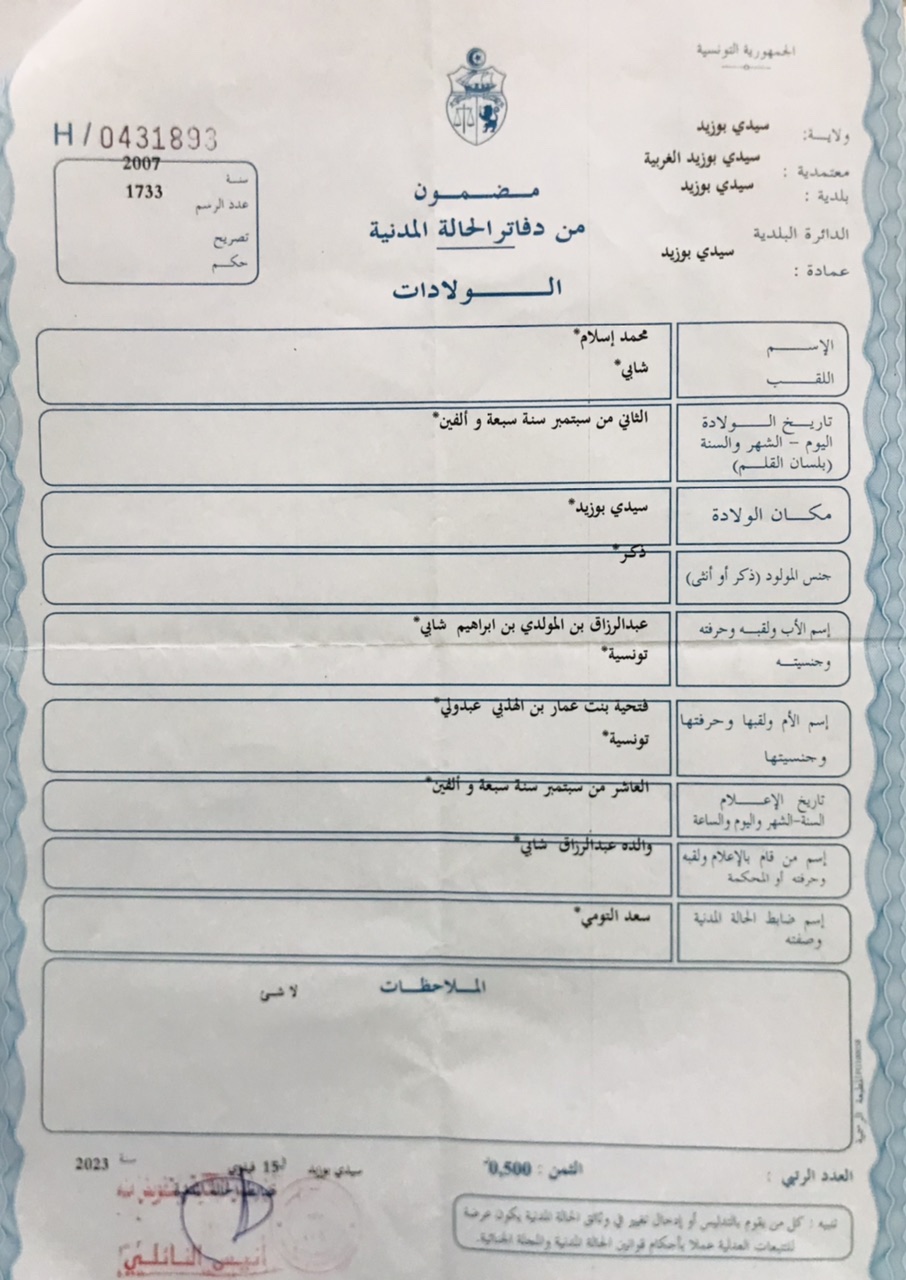 الجمهورية التونسية
ولاية: سيدي بوزيد
معتمدية : سيدي بوزيد الغربية
بلدية : سيدي بوزيد
الدائرة البلدية
عمادة : سيدي بوزيد
H/0431893
سنة 2007
عدد الرسم 1733
تصريح
حكم
مضمون
من دفاتر الحالة المدنية
الولادات
الإسم محمد إسلام*
اللقب شابي*
تاريخ الولادة الثاني من سبتمبر سنة سبعة و ألفين*
اليوم - الشهر والسنة
(بلسان القلم)
مكان الولادة سيدي بوزيد*
جنس المولود (ذكر أو أنثى) ذكر*
إسم الأب ولقبه وحرفته عبدالرزاق بن المولدي بن ابراهيم شابي*
وجنسيته تونسية*
إسم الأم ولقبها وحرفتها فتحية بنت عمار بن الهذبي عبدولي*
وجنسيتها تونسية*
تاريخ الإعلام العاشر من سبتمبر سنة سبعة و ألفين*
السنة-الشهر واليوم والساعة
إسم من قام بالإعلام ولقبه والده عبدالرزاق شابي*
وحرفته أو المحكمة
إسم ضابط الحالة المدنية سعد التومي*
وصفته
الملاحظات
لا شئ
العدد الرتبي :
الثمن : 0,500
سيدي بوزيد 15 فيفري سنة 2023
تنبيه : كل من يقوم بالتدليس أو إدخال تغيير في وثائق الحالة المدنية يكون عرضة
للتتبعات العدلية عملا بأحكام قوانين الحالة المدنية والمجلة الجنائية.
أنيس النائلي